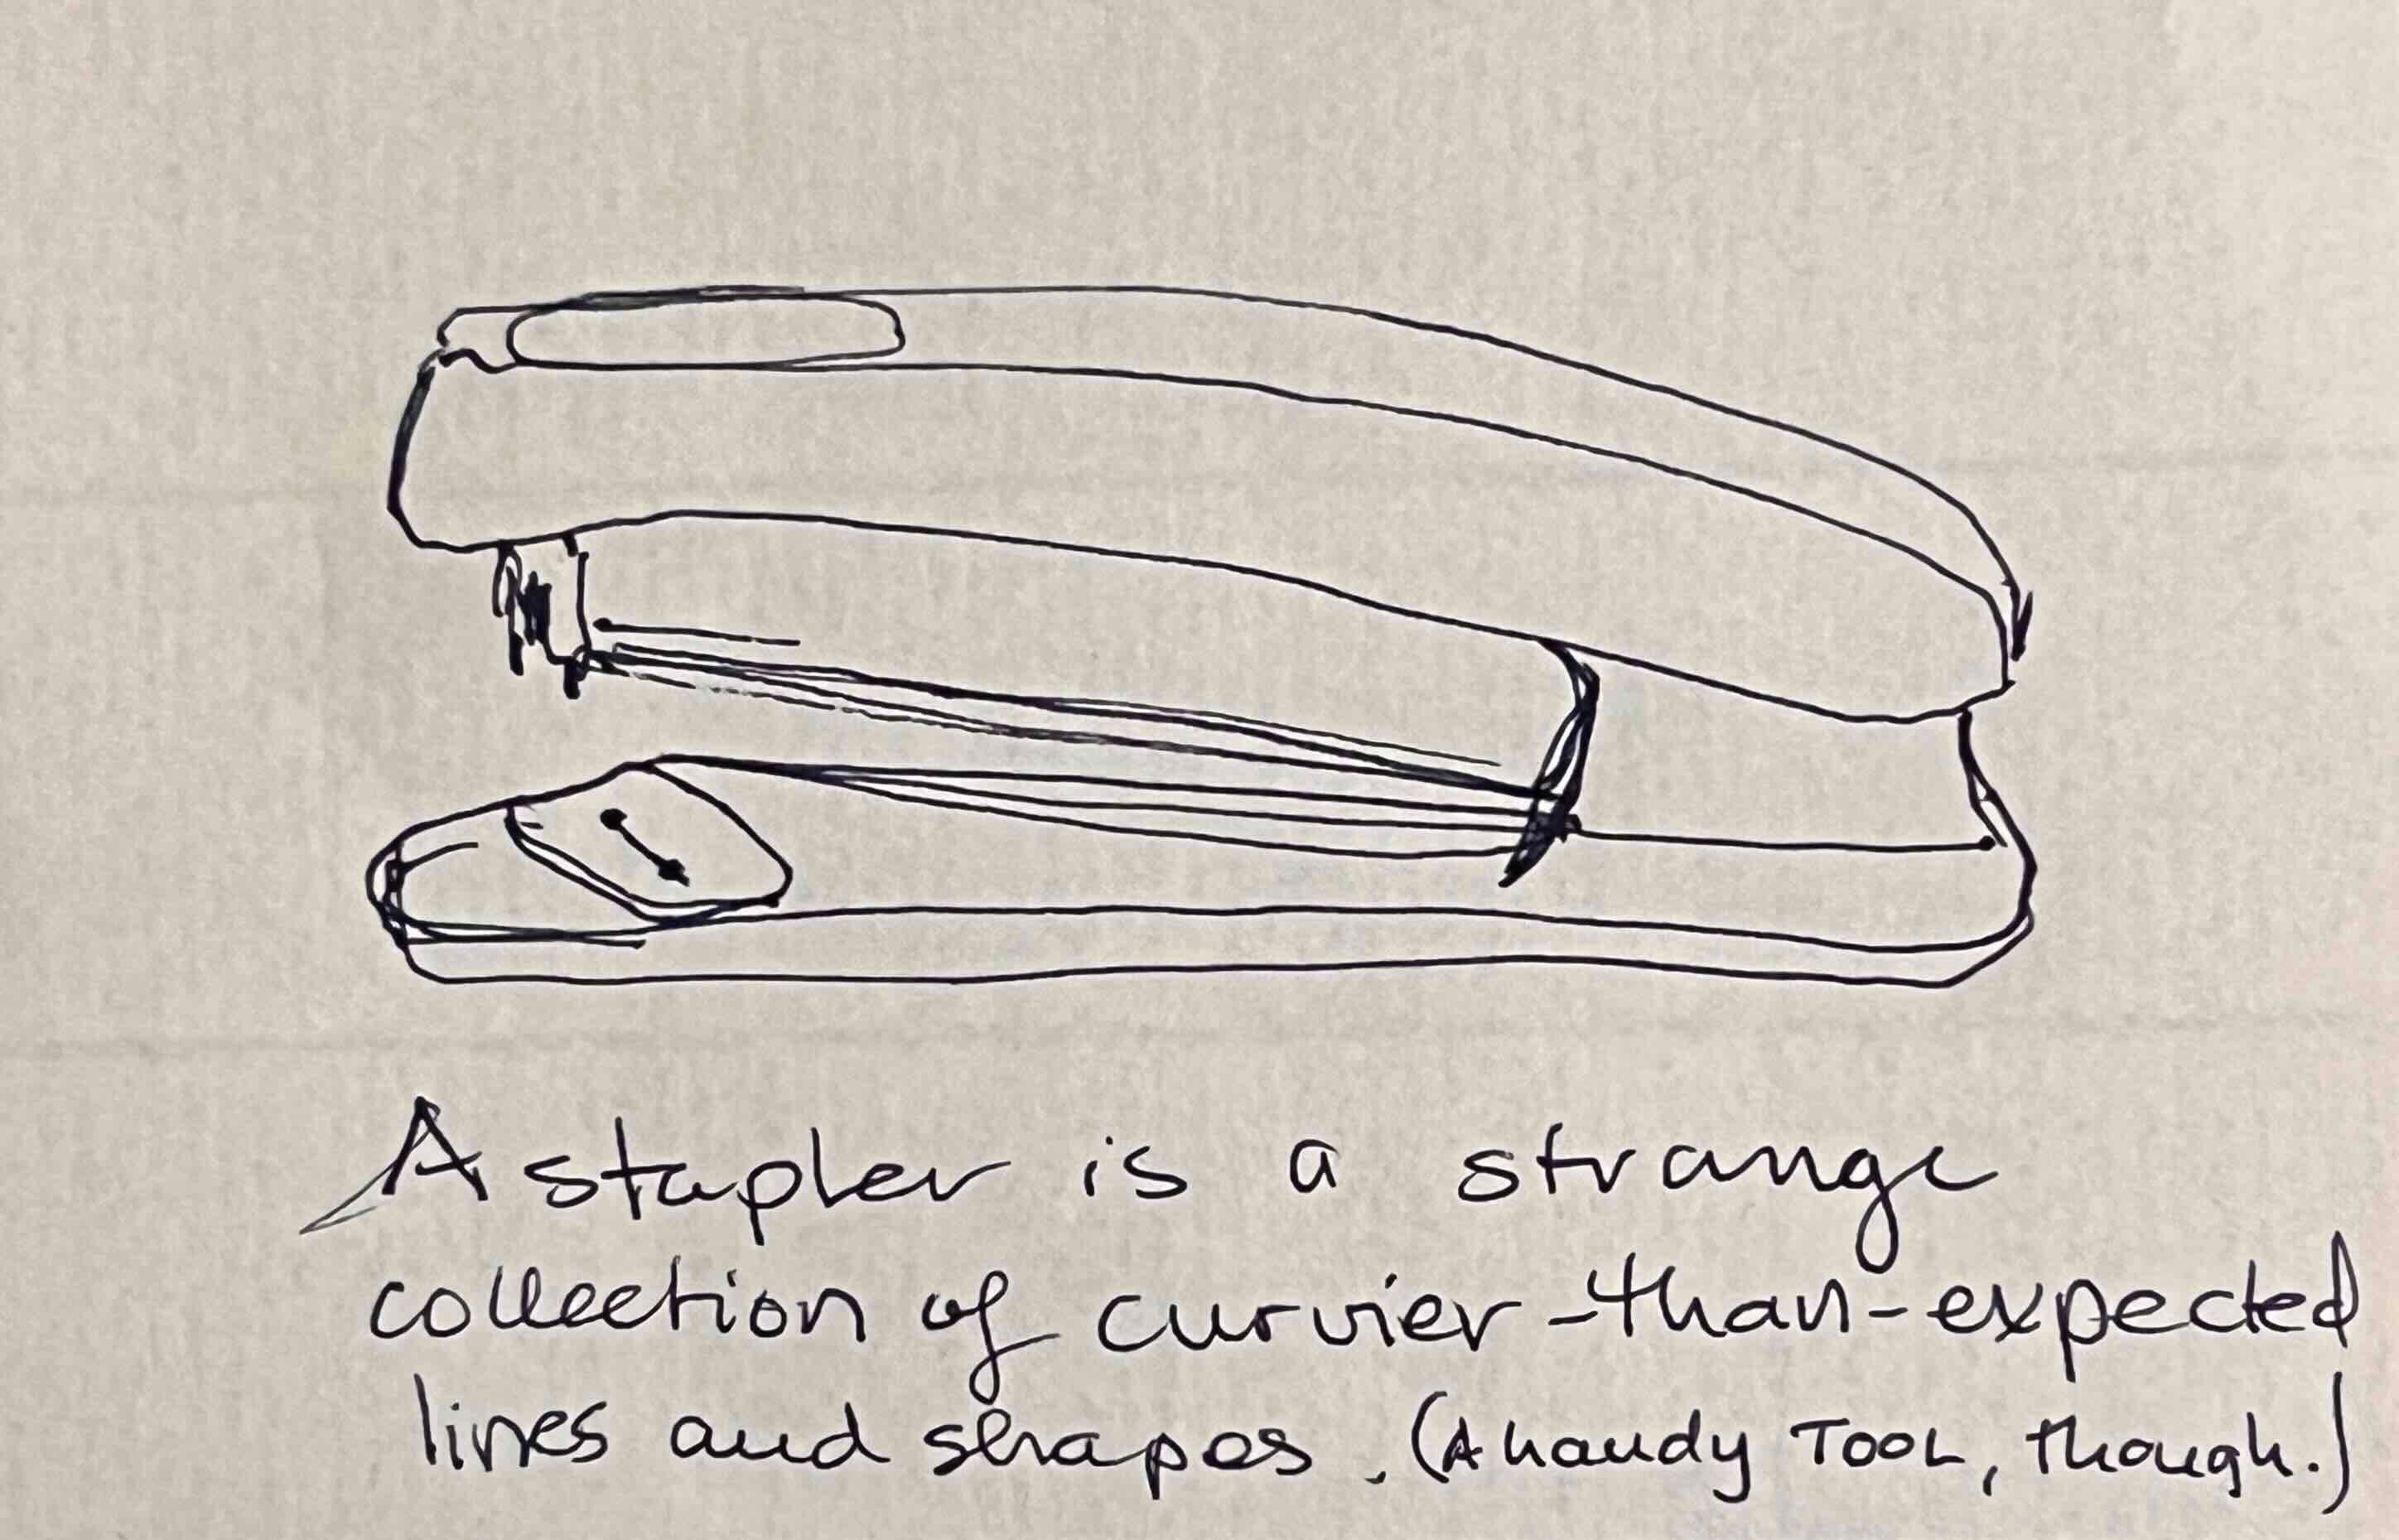 A stapler is a strange
collection of curvier-than-expected
lines and shapes. (A handy TOOL, though.)